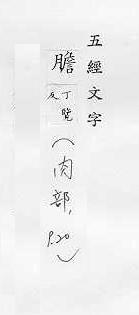 五經文字
膽丁覽反(肉部, P.20)